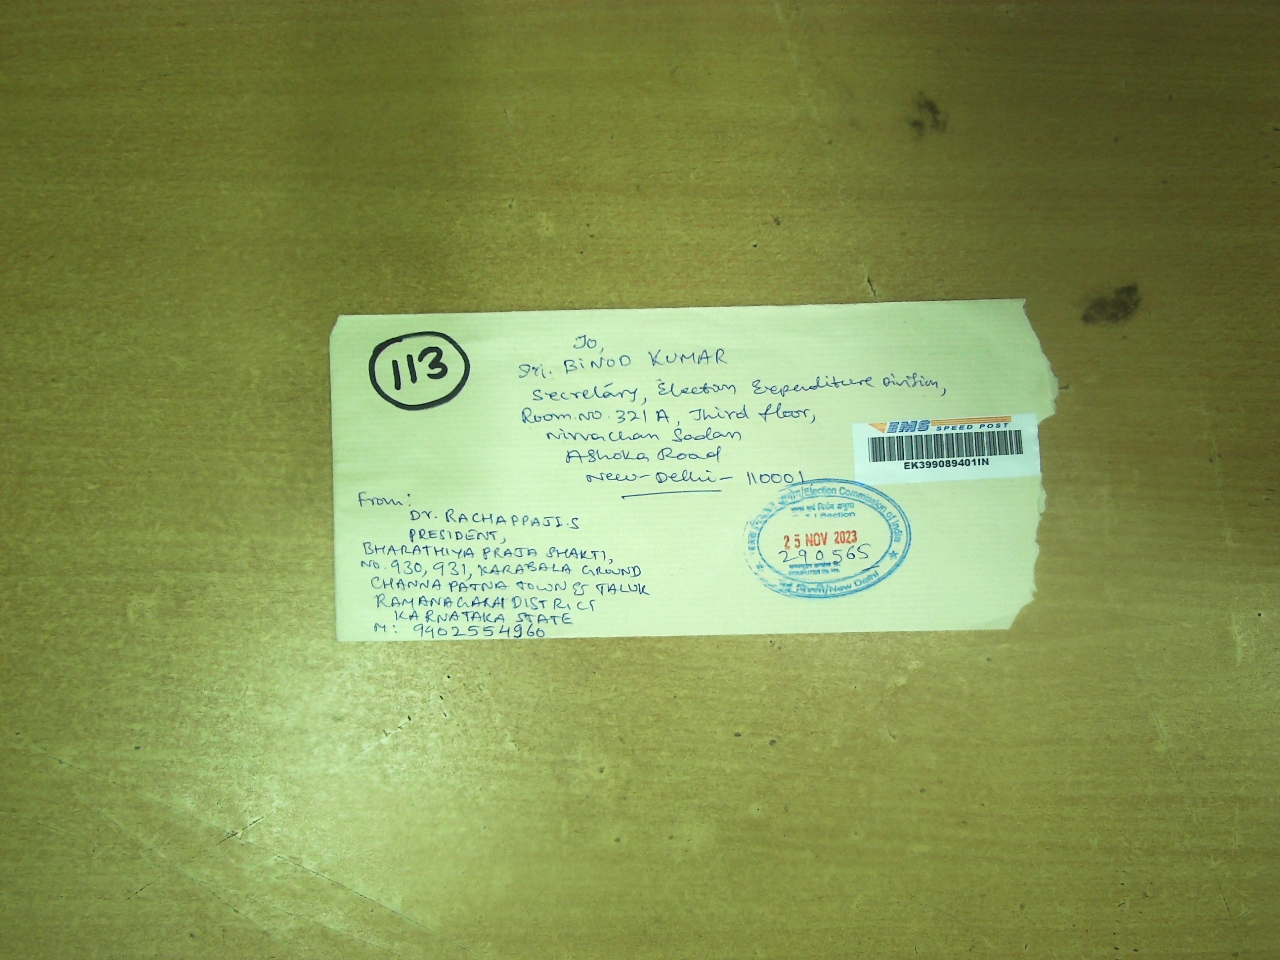 113
To,
Sri. BINOD KUMAR
Secretary, Election Expenditure Division,
Room.NO. 321 A, Third floor,
Nirvachan Sadan
AShoka Road
New-Delhi- 110001
EMS SPEED POST
EK399089401IN
From:
Dr. RACHAPPAJI.S
PRESIDENT,
BHARATHIYA PRAJA SHAKTI,
NO.930, 931, KARABALA GROUND
CHANNAPATNA TOWN & TALUK
RAMANAGARA DISTRICT
KARNATAKA STATE
M: 9402554960
/Election Commission of India
Section
25 NOV 2023
290565
नई दिल्ली/New Delhi